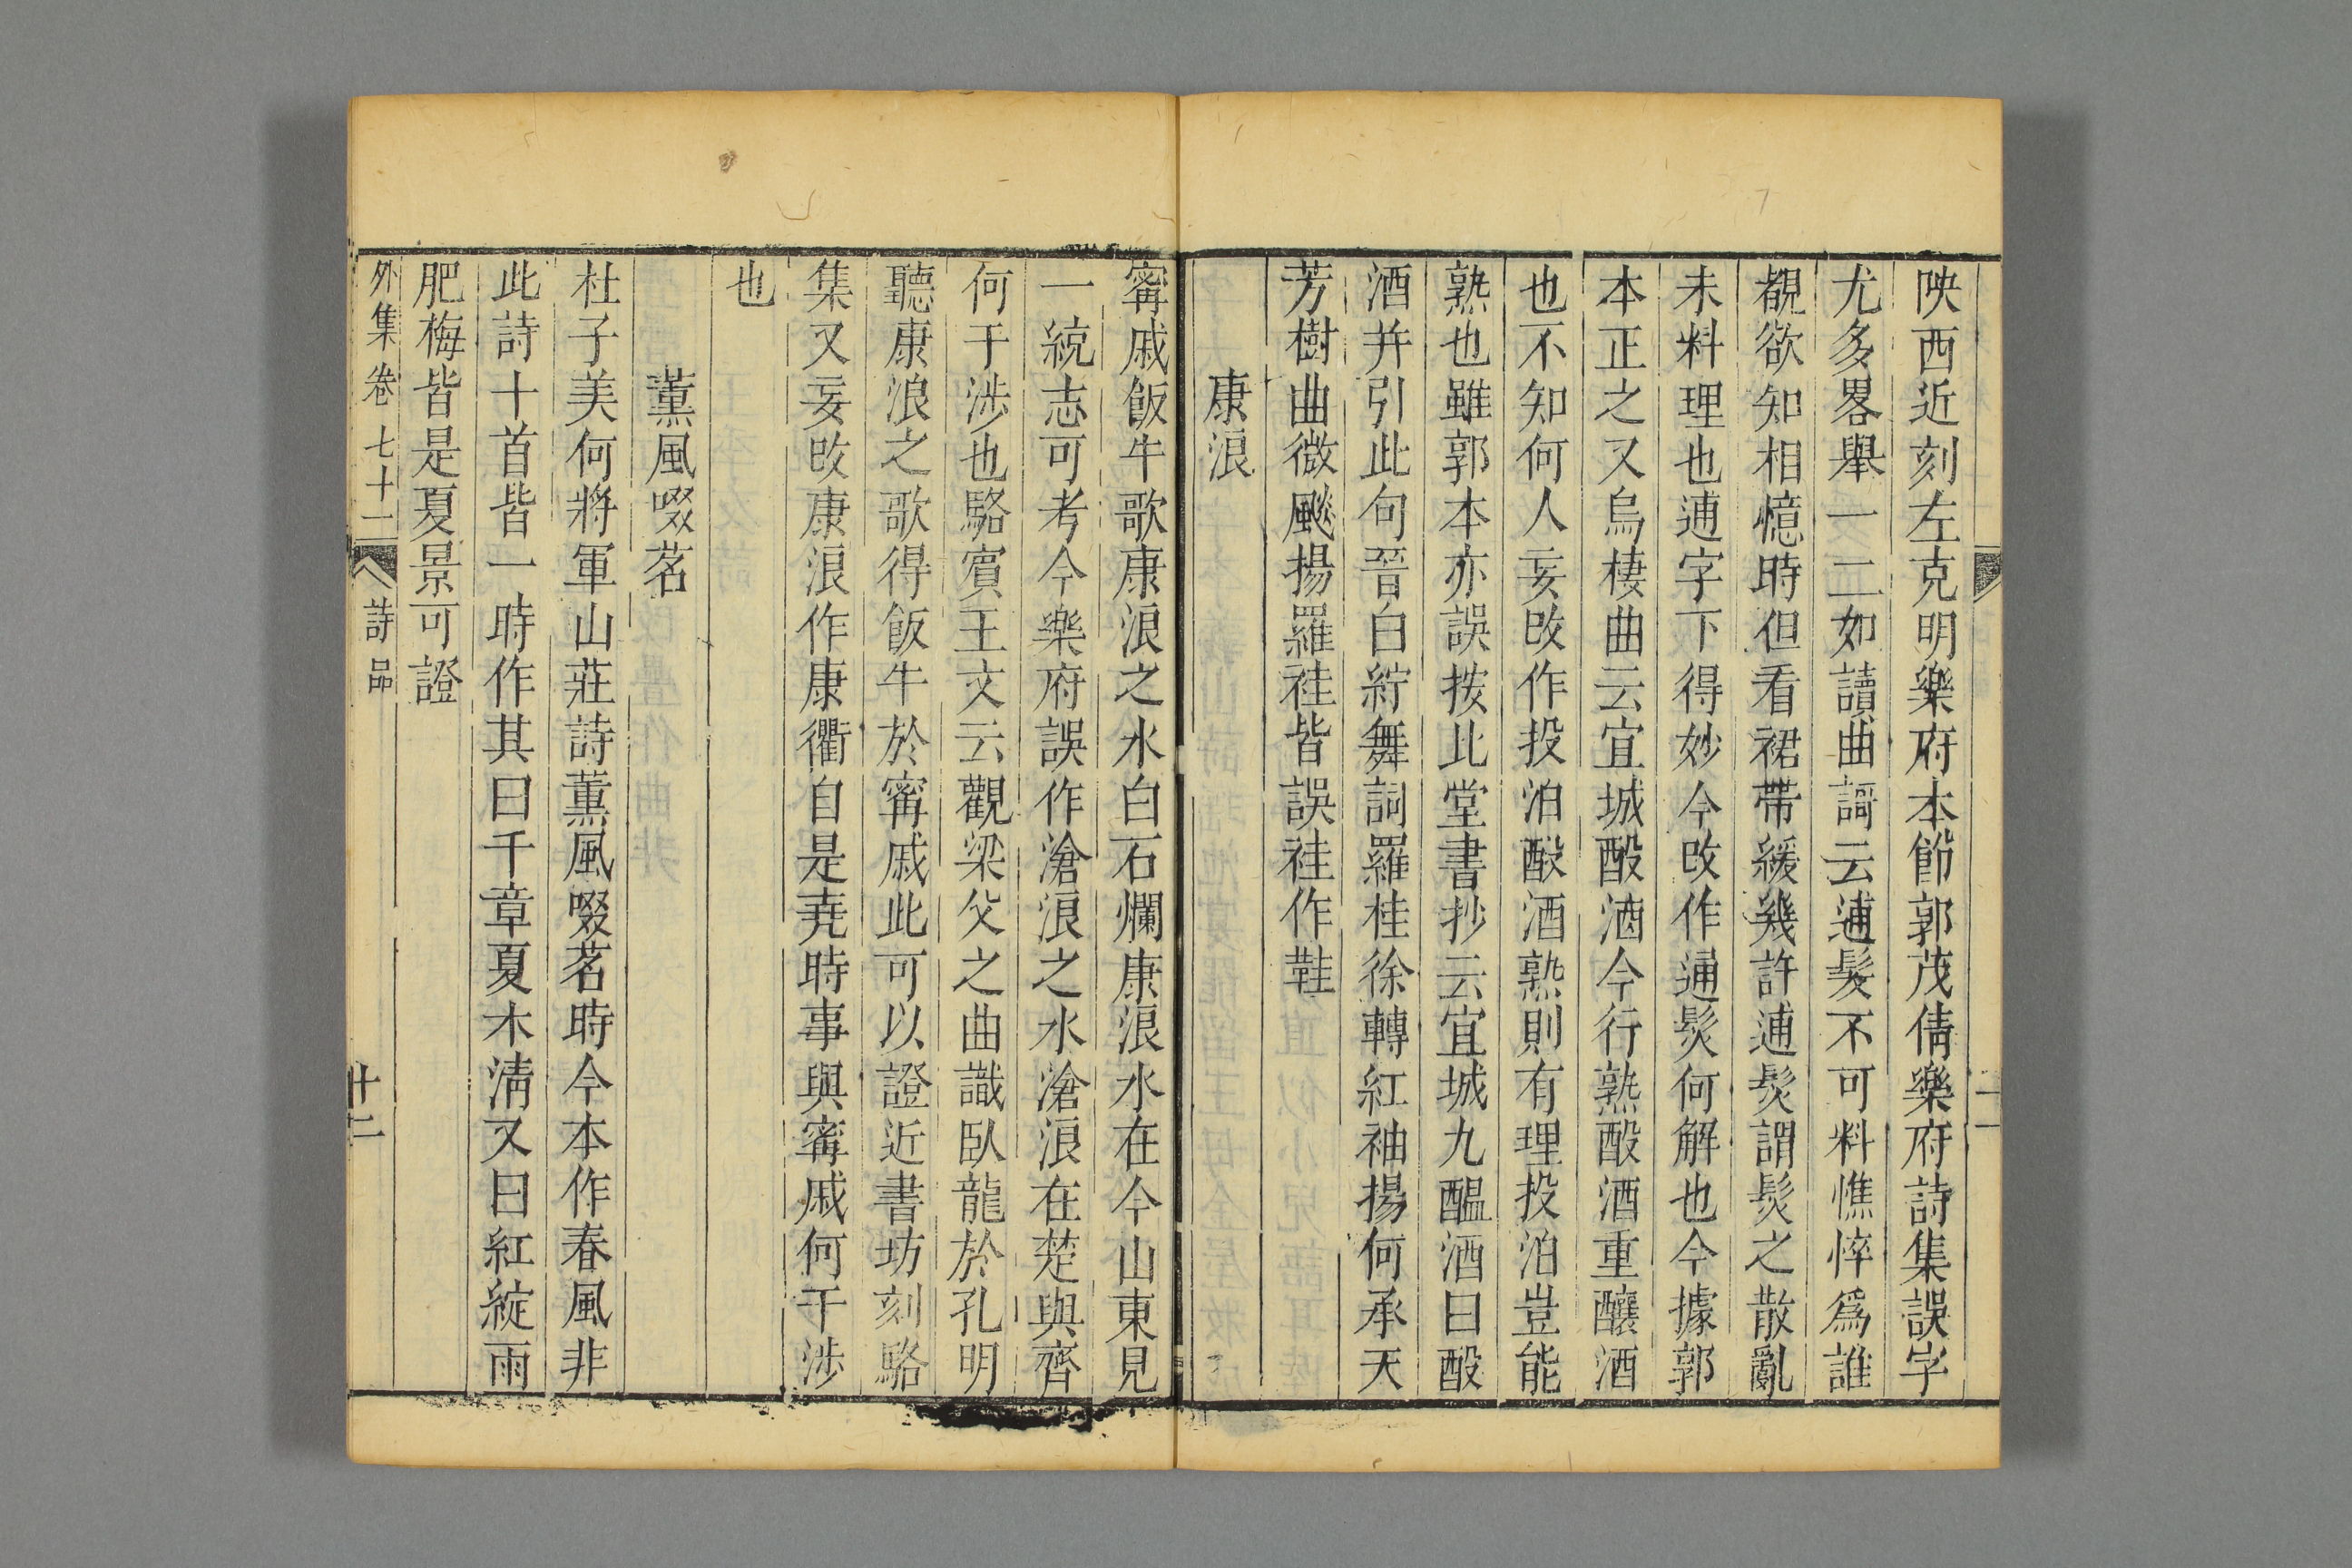 陜西近刻左克明樂府本節郭茂倩樂府詩集誤字
尤多畧舉一二如讀曲謌云逋髮不可料憔悴爲誰
覩欲知相憶時但看裙帶緩幾許逋髮謂髮之散亂
未料理也逋字下得妙今改作通髮何解也今據郭
本正之又烏棲曲云宜城酘酒今行熟酘酒重釀酒
也不知何人妄改作投泊酘酒熟則有理投泊豈能
熟也雖郭本亦誤按北堂書抄云宜城九醞酒曰酘
酒并引此句晉白紵舞詞羅桂徐轉紅袖揚何承天
芳樹曲微飈揚羅袿皆誤袿作鞋
康浪
甯戚飯牛歌康浪之水白石爛康浪水在今山東見
一統志可考今樂府誤作滄浪之水滄浪在楚與齊
何干涉也駱賓王文云觀梁父之曲識臥龍於孔明
聽康浪之歌得飯牛於甯戚此可以證近書坊刻駱
集又妄改康浪作康衢自是堯時事與甯戚何干涉
也
薰風啜茗
杜子美何將軍山莊詩薰風啜茗時今本作春風非
此詩十首皆一時作其曰千章夏木清又曰紅綻雨
肥梅皆是夏景可證
外集卷七十二 詩品 十二